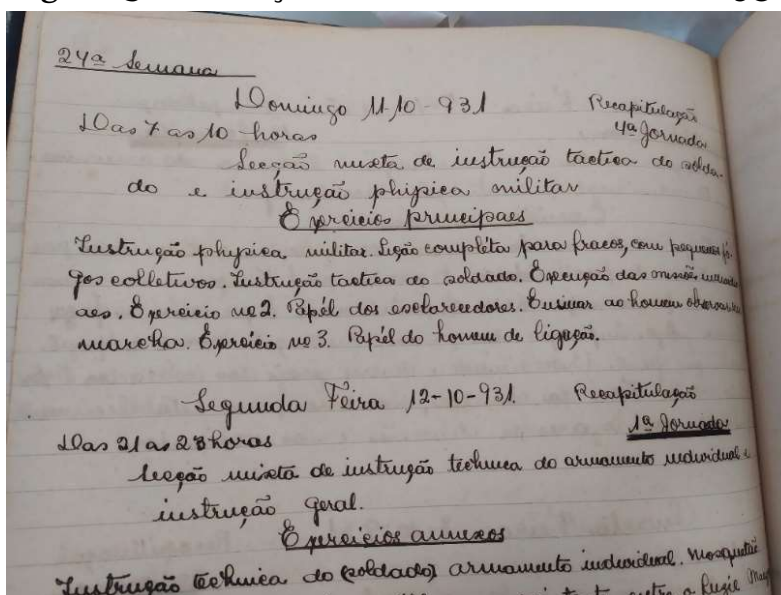 24ª Semana
Domingo 11-10-931 Recapitulação
Das 7 as 10 horas 4ª Jornada
Secção mixta de instrução tactica do solda-
do e instrução phipica militar
Exercicios principaes
Instrução phypica militar. Lição compléta para fracos, com pequenos jo-
gos colletivos. Instrução tactica do soldado. Execução das missões individu
aes. Exercicio nº 2. Papél dos esclarecedores. Ensinar ao homem observar em
marcha. Exercicio nº 3. Papél do homem de ligação.
Segunda Feira 12-10-931. Recapitulação
Das 21 as 23 horas 1ª Jornada
Secção mixta de instrução technica do armamento individual e
instrução geral.
Exercicios annexos
Instrução technica do (soldado) armamento individual. Mosquetão
entre o Fuzil